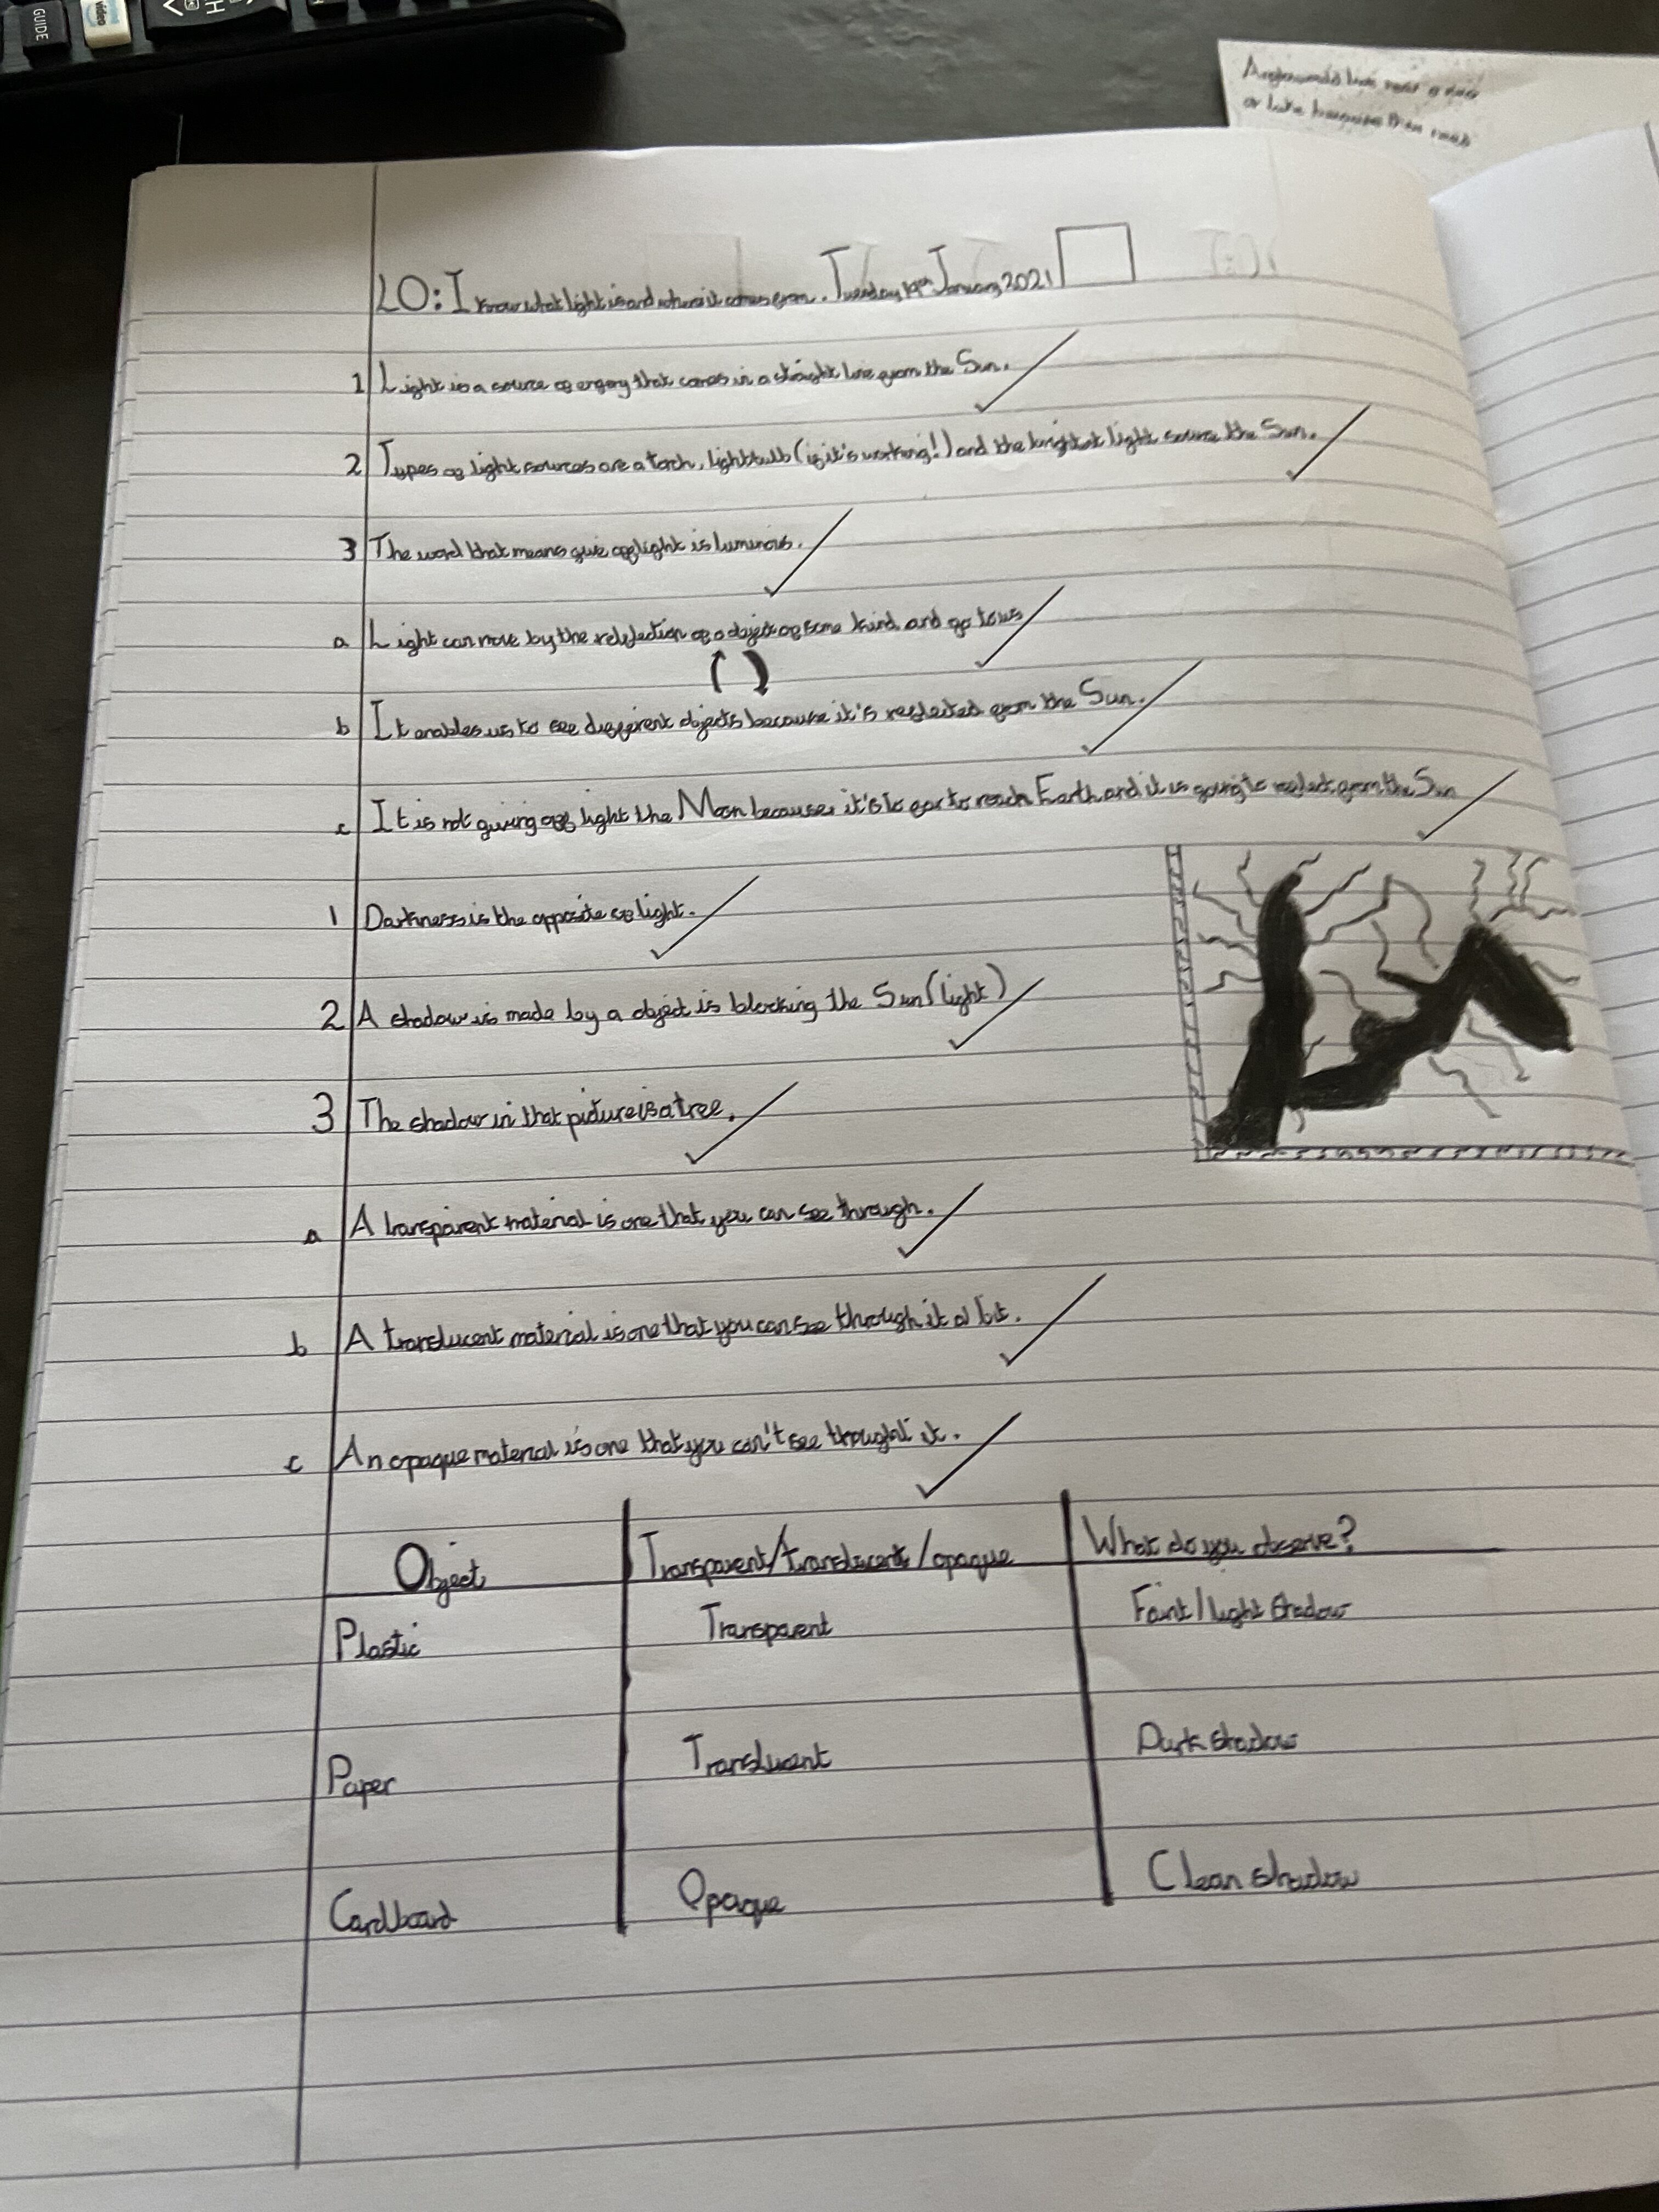 GUIDE
video
H
or lake because
LO: I know what light is and where it comes from. Tuesday 19th January 2021
1 Light is a source of engery that comes in a straight line from the Sun.
2 Types of light sources are a torch, lightbulb (if it's working!) and the brightest light source the Sun.
3 The word that means give off light is luminous.
a Light can move by the relflection of a object of some kind and go to us
b It enables us to see different objects because it's reflected from the Sun.
c It is not giving off light the Moon because it's to far to reach Earth and it is going to reflect from the Sun
1 Darkness is the opposite of light.
2 A shadow is made by a object is blocking the Sun (light)
3 The shadow in that picture is a tree.
a A transparent material is one that you can see through.
b A translucent material is one that you can see through it a bit.
c An opaque material is one that you can't see thought it.
Object Transparent/translucent/opaque What do you observe?
Plastic Transparent Faint/light shadow
Paper Translucent Dark shadow
Cardboard Opaque Clean shadow